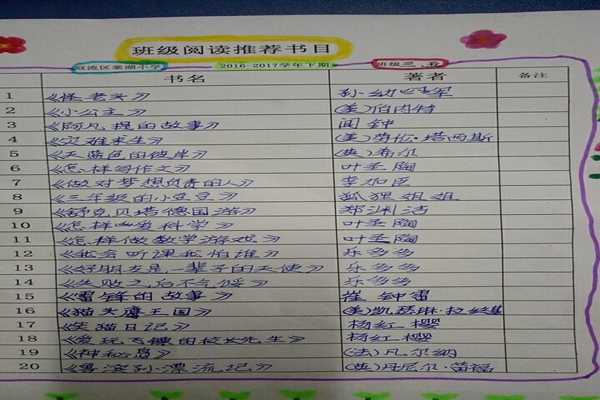 班级阅读推荐书目
双流区棠湖小学 2016-2017学年下期 班级 三、五
书名 著者 备注
1 《怪老头》 孙幼军
2 《小公主》 (美)伯内特
3 《阿凡提的故事》 闻钟
4 《灾难求生》 (美)劳伦·塔西斯
5 《天蓝色的彼岸》 (英)希尔
6 《怎样写作文》 叶圣陶
7 《做对梦想负责的人》 李加臣
8 《三年级的小豆豆》 狐狸姐姐
9 《舒克贝塔德国游》 郑渊洁
10 《怎样爱科学》 叶圣陶
11 《怎样做数学游戏》 叶圣陶
12 《我会听课我怕谁》 乐多多
13 《好朋友是一辈子的天使》 乐多多
14 《失败之后不气馁》 乐多多
15 《雷锋的故事》 崔钟雷
16 《猫头鹰王国》 (美)凯瑟琳·拉丝基
17 《笑猫日记》 杨红樱
18 《爱玩飞碟的校长先生》 杨红樱
19 《神秘岛》 (法)凡尔纳
20 《鲁滨孙漂流记》 (英)丹尼尔·笛福